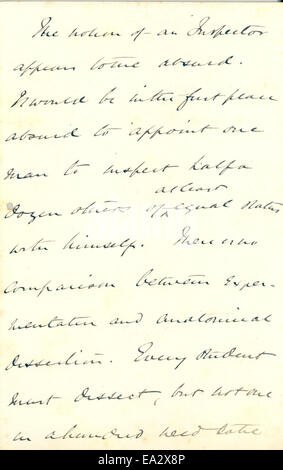 The notion of an Inspector
appears to me absurd.
It would be in the first place
absurd to appoint one
man to inspect half a
at least
dozen others of equal status
with himself. There is no
comparison between exper-
mentation and anatomical
dissection. Every student
must dissect, but not one
in a hundred need
alamy stock photo
EA2X8P